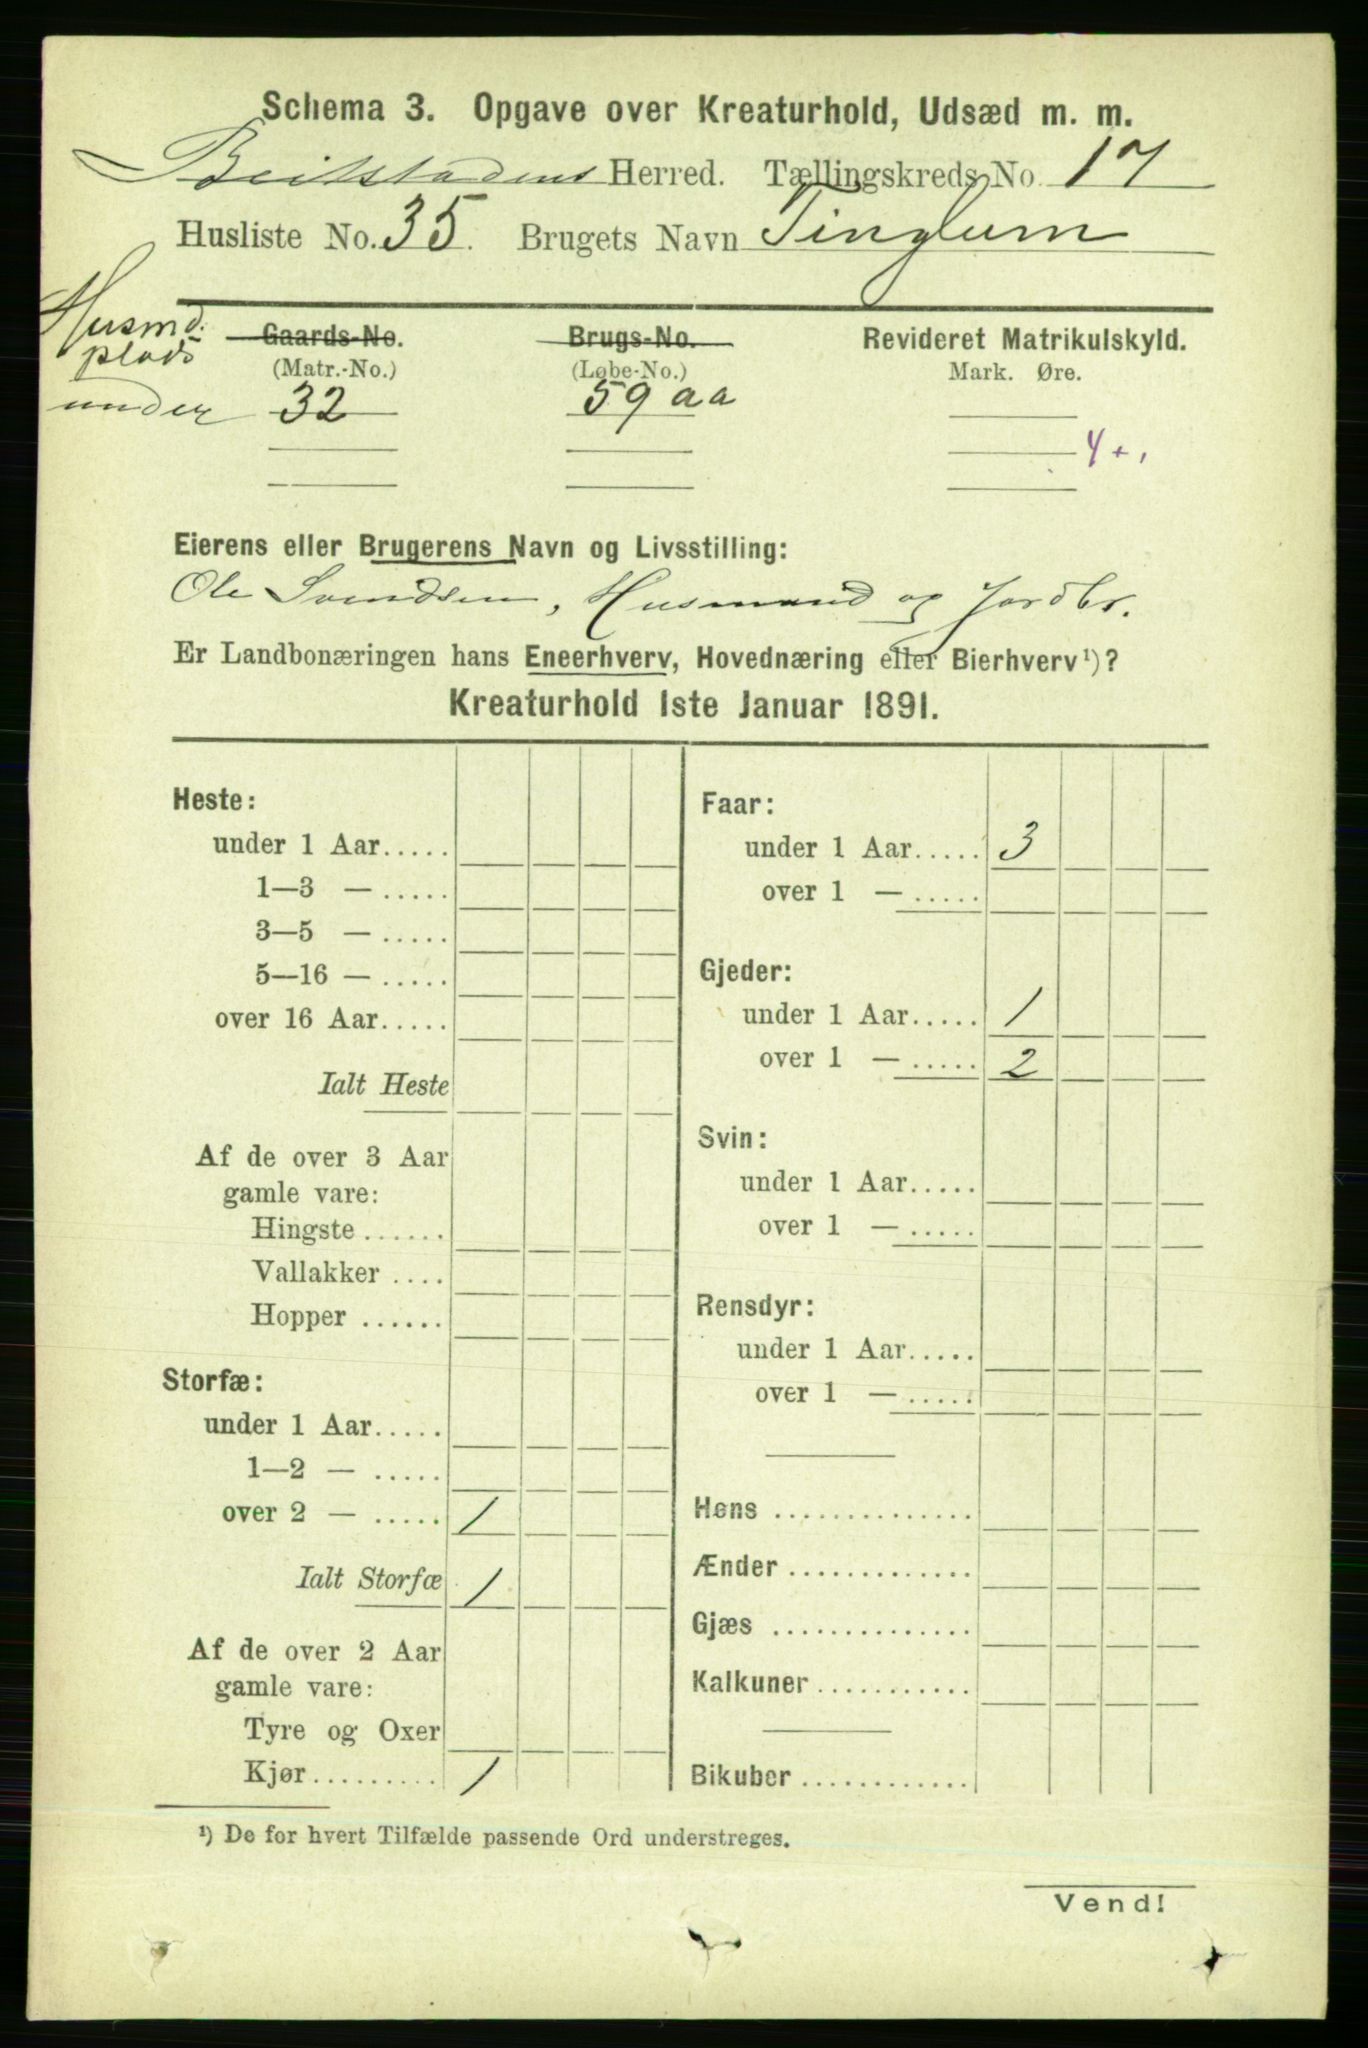 Schema 3. Opgave over Kreaturhold, Udsæd m. m.
Beitstadens Herred. Tællingskreds No. 17
Husliste No. 35. Brugets Navn Tinglum
Husmd. plads under
Gaards-No. Brugs-No. Revideret Matrikulskyld.
(Matr.-No.) (Løbe-No.) Mark. Øre.
32 59 aa
4 +,
Eierens eller Brugerens Navn og Livsstilling:
Ole Svendsen, Husmand og Jordbr.
Er Landbonæringen hans Eneerhverv, Hovednæring eller Bierhverv ¹)?
Kreaturhold 1ste Januar 1891.
Heste:
under 1 Aar.....
1—3 — .....
3—5 — .....
5—16 — .....
over 16 Aar.....
Ialt Heste
Af de over 3 Aar
gamle vare:
Hingste ......
Vallakker ....
Hopper ......
Storfæ:
under 1 Aar.....
1—2 — .....
over 2 — ..... 1
Ialt Storfæ 1
Af de over 2 Aar
gamle vare:
Tyre og Oxer
Kjør......... 1
Faar:
under 1 Aar..... 3
over 1 — .....
Gjeder:
under 1 Aar..... 1
over 1 — ..... 2
Svin:
under 1 Aar.....
over 1 — .....
Rensdyr:
under 1 Aar.....
over 1 — .....
Høns ..............
Ænder .............
Gjæs ..............
Kalkuner...........
Bikuber ............
¹) De for hvert Tilfælde passende Ord understreges.
Vend!